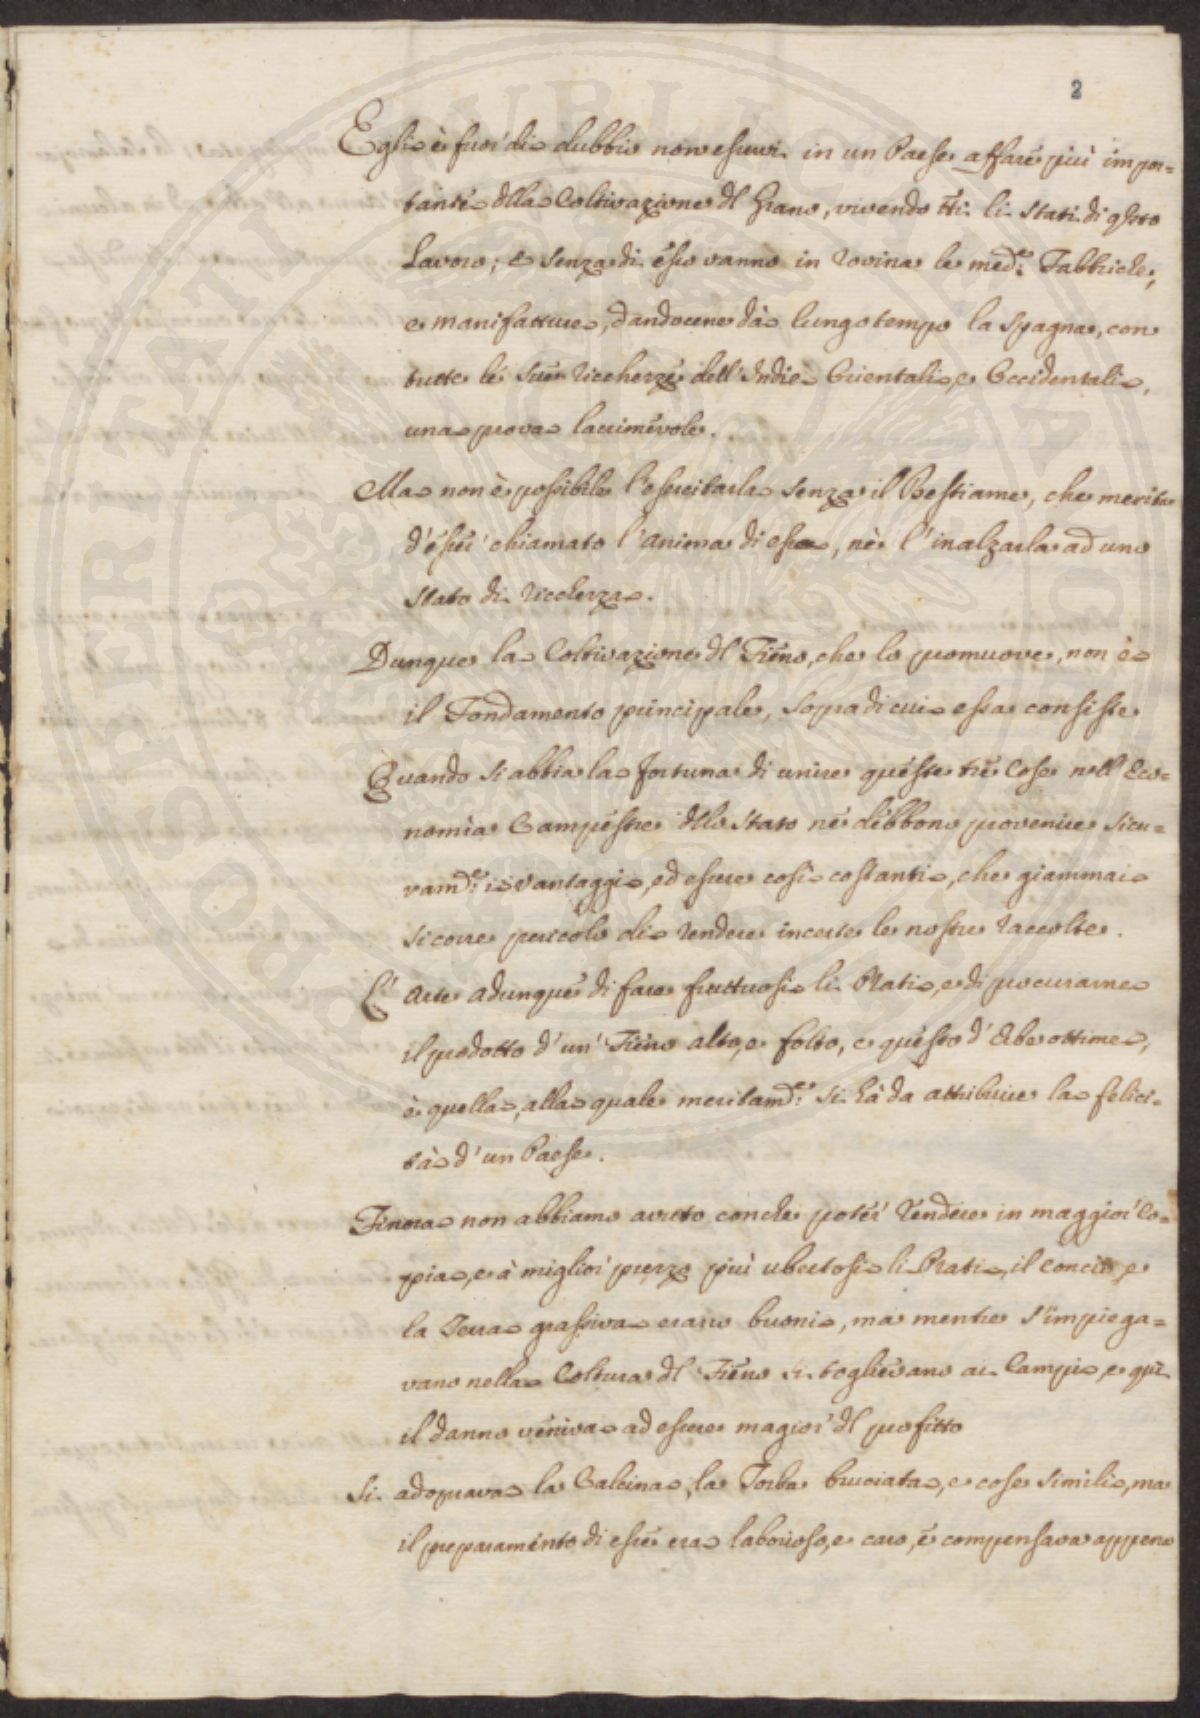 2
Egli è fuor' di dubbio non esservi in un Paese affare più impor=
tante dlla Coltivazione dl Grano, vivendo tti li Stati di qsto
Lavoro; e senza di esso vanno in rovina le med.e Fabbriche,
e manifatture, dandocene dà lungo tempo la Spagna, con
tutte le sue ricchezze dell'Indie Orientali, e Occidentali,
una prova lacrimevole.
Ma non è possibile l'esercitarla senza il Bestiame, che merita
d'esser' chiamato l'anima di essa, nè l'inalzarla ad uno
stato di ricchezza.
Dunque la Coltivazione dl Fieno, che lo promuove, non è
il Fondamento principale, sopra di cui essa consiste
Quando si abbia la fortuna di unire queste trè Cose nell' Eco=
nomia Campestre dllo Stato ne debbono provenire sicu=
ramd.e i vantaggi, ed essere così costanti, che giammai
si corre pericolo di rendere incerte le nostre raccolte.
L' Arte adunque di fare fruttuosi li Prati, e di procurarne
il prodotto d'un' Fieno alto, e folto, e questo d' Erbe ottime,
è quella, alla quale meritamd.e si hà da attribuire la felici=
tà d' un Paese.
Finora non abbiamo avuto con che poter' rendere in maggior' Co=
pia, e à miglior' prezzo più ubertosi li Prati, il concio, e
la Terra grassiva erano buoni, ma mentre s'impiega=
vano nella Coltura dl Fieno si toglievano ai Campi, e qui
il danno veniva ad essere magior' dl profitto
Si adoprava la Calcina, la Torba bruciata, e cose simili, ma
il preparamento di esse era laborioso, e caro, e compensava appena